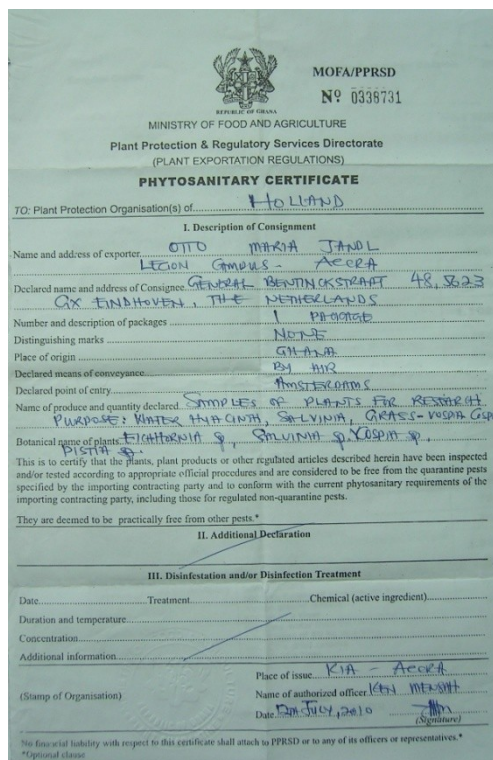 MOFA/PPRSD
Nº 0338731
REPUBLIC OF GHANA
MINISTRY OF FOOD AND AGRICULTURE
Plant Protection & Regulatory Services Directorate
(PLANT EXPORTATION REGULATIONS)
PHYTOSANITARY CERTIFICATE
TO: Plant Protection Organisation(s) of HOLLAND
I. Description of Consignment
Name and address of exporter OTTO MARIA JANDL
LEGON CAMPUS - ACCRA
Declared name and address of Consignee GENERAL BENTINCKSTRAAT 48, 5623
GX EINDHOVEN, THE NETHERLANDS
Number and description of packages 1 PACCAGE
Distinguishing marks NONE
Place of origin GHANA
Declared means of conveyance BY AIR
Declared point of entry AMSTERDAMS
Name of produce and quantity declared SAMPLES OF PLANTS FOR RESEARCH
PURPOSE: WATER HYACINTH, SALVINIA, GRASS-VOSPIA
Botanical name of plants EICHHORNIA sp, SALVINIA sp. VOSPIA sp,
PISTIA sp.
This is to certify that the plants, plant products or other regulated articles described herein have been inspected
and/or tested according to appropriate official procedures and are considered to be free from the quarantine pests
specified by the importing contracting party and to conform with the current phytosanitary requirements of the
importing contracting party, including those for regulated non-quarantine pests.
They are deemed to be practically free from other pests.*
II. Additional Declaration
III. Disinfestation and/or Disinfection Treatment
Date Treatment Chemical (active ingredient)
Duration and temperature
Concentration
Additional information
Place of issue KIA - ACCRA
(Stamp of Organisation) Name of authorized officer KEN MENSAH
Date JULY, 2010
(Signature)
No financial liability with respect to this certificate shall attach to PPRSD or to any of its officers or representatives.*
*Optional clause